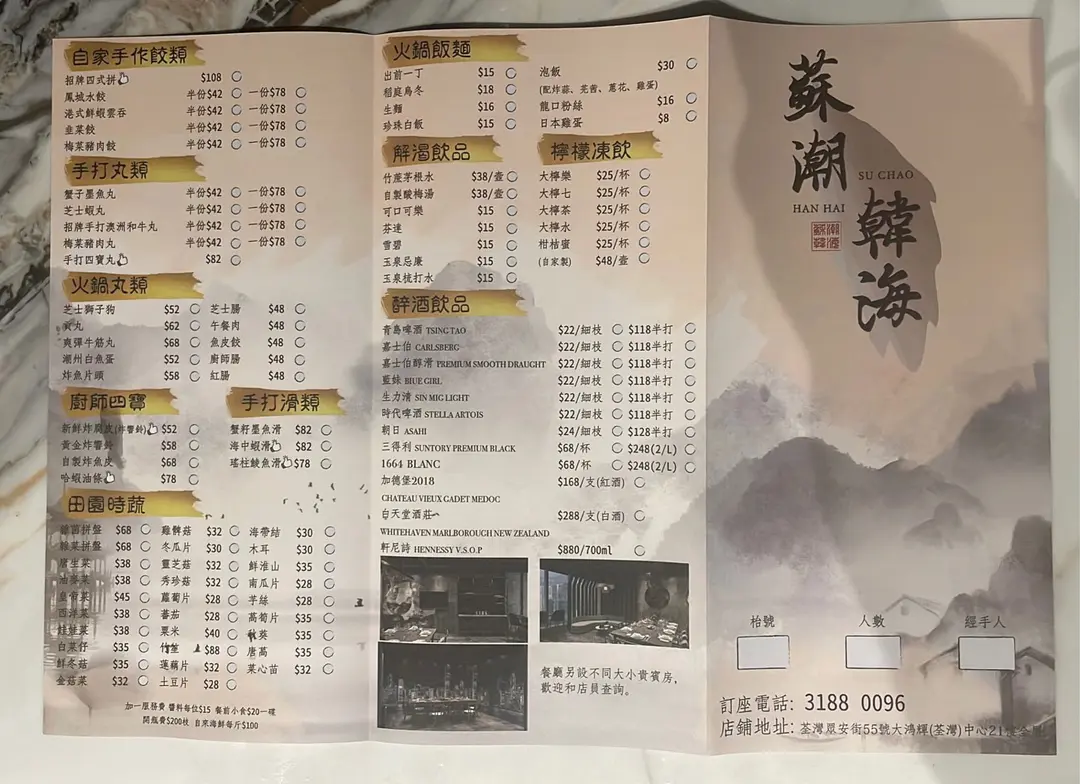 自家手作餃類
招牌四式拼 $108
鳳城水餃 半份$42 一份$78
港式鮮蝦雲吞 半份$42 一份$78
韭菜餃 半份$42 一份$78
梅菜豬肉餃 半份$42 一份$78
手打丸類
蟹子墨魚丸 半份$42 一份$78
芝士蝦丸 半份$42 一份$78
招牌手打澳洲和牛丸 半份$42 一份$78
梅菜豬肉丸 半份$42 一份$78
手打四寶丸 $82
火鍋丸類
芝士獅子狗 $52 芝士腸 $48
貢丸 $62 午餐肉 $48
爽彈牛筋丸 $68 魚皮餃 $48
潮州白魚蛋 $52 廚師腸 $48
炸魚片頭 $58 紅腸 $48
廚師四寶
新鮮炸腐皮(炸響鈴) $52
黃金炸響鈴 $58
自製炸魚皮 $68
哈蝦油條 $78
手打滑類
蟹籽墨魚滑 $82
海中蝦滑 $82
瑤柱鯪魚滑 $78
田園時蔬
雜菌拼盤 $68 雞髀菇 $32 海帶結 $30
雜菜拼盤 $68 冬瓜片 $30 木耳 $30
唐生菜 $38 靈芝菇 $32 鮮淮山 $35
油麥菜 $38 秀珍菇 $32 南瓜片 $28
皇帝菜 $45 蘿蔔片 $28 芋絲 $28
西洋菜 $38 蕃茄 $28 萵筍片 $35
娃娃菜 $38 粟米 $40 秋葵 $35
白菜仔 $35 竹笙 $88 唐萵 $35
鮮冬菇 $35 蓮藕片 $32 菜心苗 $32
金菇菜 $32 土豆片 $28
加一服務費 醬料每位$15 餐前小食$20一碟
開瓶費$200枝 自來海鮮每斤$100
火鍋飯麵
出前一丁 $15
稻庭烏冬 $18
生麵 $16
珍珠白飯 $15
泡飯 $30
(配炸蒜、芫茜、蔥花、雞蛋)
龍口粉絲 $16
日本雞蛋 $8
解渴飲品
竹蔗茅根水 $38/壺
自製酸梅湯 $38/壺
可口可樂 $15
芬達 $15
雪碧 $15
玉泉忌廉 $15
玉泉梳打水 $15
檸檬凍飲
大檸樂 $25/杯
大檸七 $25/杯
大檸茶 $25/杯
大檸水 $25/杯
柑桔蜜 $25/杯
(自家製) $48/壺
醉酒飲品
青島啤酒 TSING TAO $22/細枝 $118半打
嘉士伯 CARLSBERG $22/細枝 $118半打
嘉士伯醇滑 PREMIUM SMOOTH DRAUGHT $22/細枝 $118半打
藍妹 BIUE GIRL $22/細枝 $118半打
生力清 SIN MIG LIGHT $22/細枝 $118半打
時代啤酒 STELLA ARTOIS $22/細枝 $118半打
朝日 ASAHI $24/細枝 $128半打
三得利 SUNTORY PREMIUM BLACK $68/杯 $248(2/L)
1664 BLANC $68/杯 $248(2/L)
加德堡2018 $168/支(紅酒)
CHATEAU VIEUX GADET MEDOC
白天堂酒莊 $288/支(白酒)
WHITEHAVEN MARLBOROUGH NEW ZEALAND
軒尼詩 HENNESSY V.S.O.P $880/700ml
餐廳另設不同大小貴賓房，
歡迎和店員查詢。
蘇潮
SU CHAO
HAN HAI
韓海
枱號 人數 經手人
訂座電話: 3188 0096
店鋪地址: 荃灣眾安街55號大鴻輝(荃灣)中心21樓全層